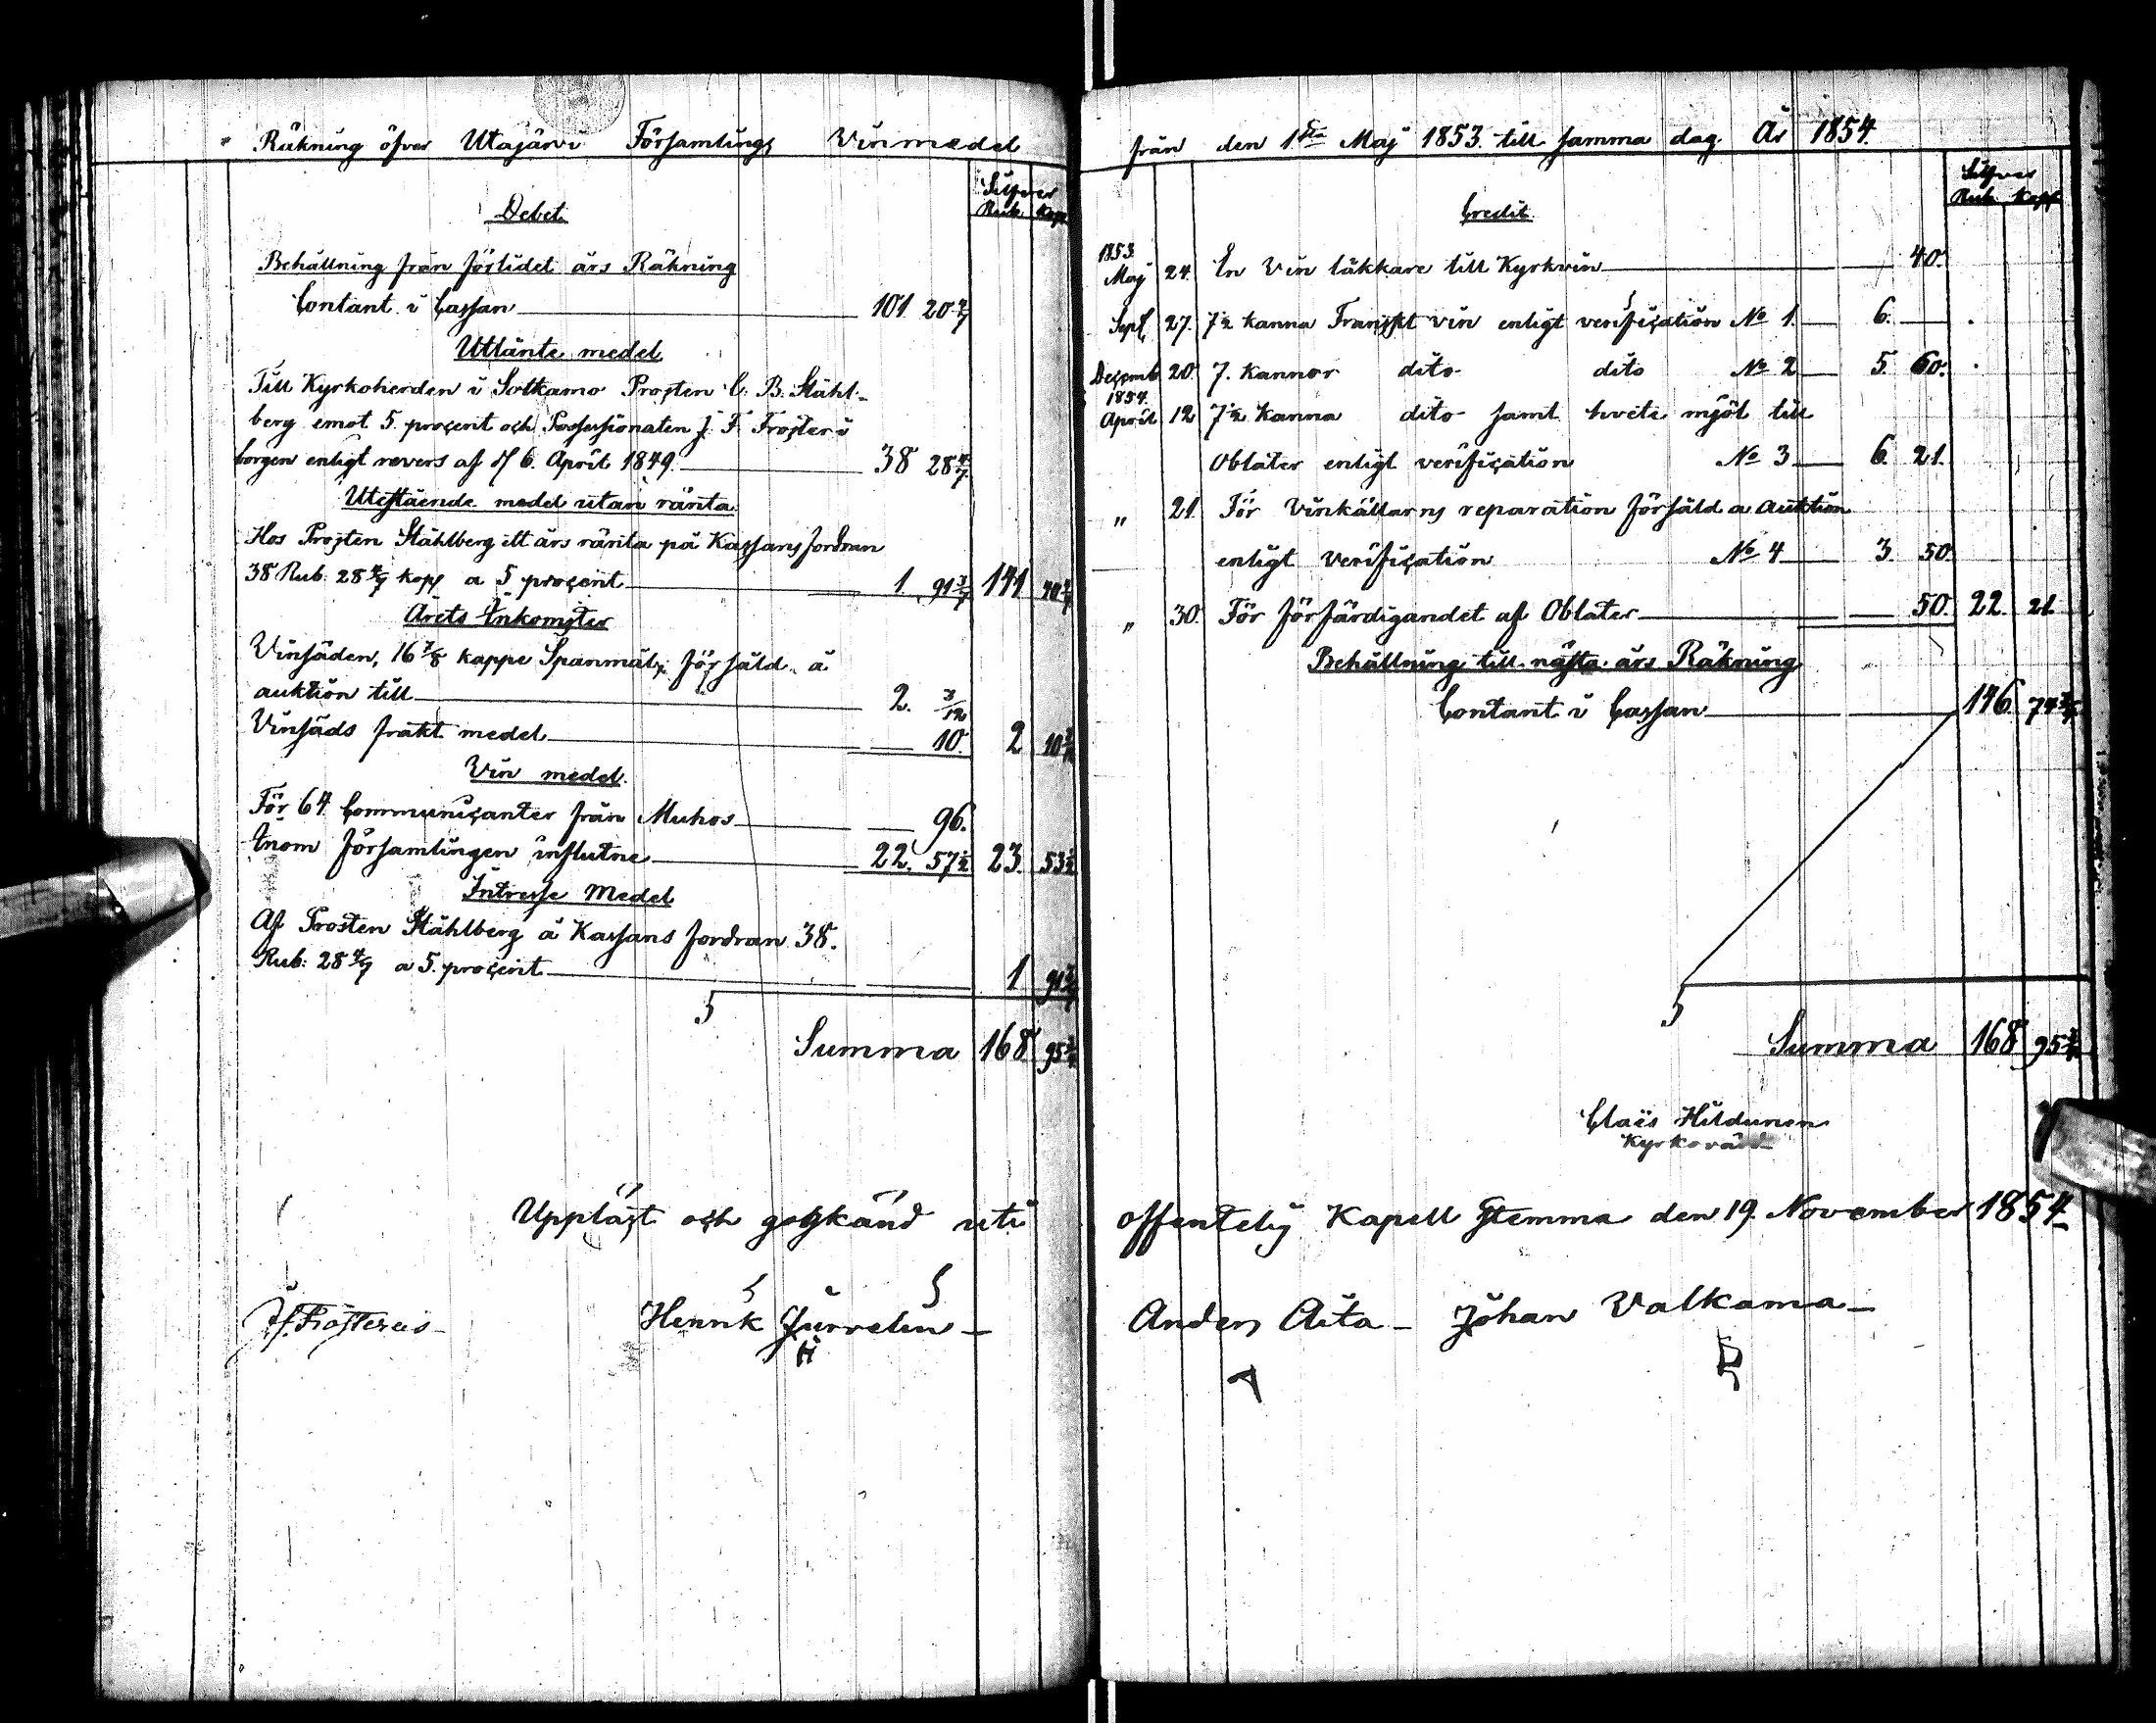 Räkning öfver Utajärvi Församlings Vinmedel
Silfver
Rub. Kop.
Debet
Behållning från förlidet års Räkning
Contant i Cassan 101 20 2/7
Utlänte medel
Till Kyrkoherden i Sotkamo Prosten C. B. Ståhl-
berg emot 5. procent och Possessionaten J. F. Frosteri
borgen enligt revers af d/ 6. April 1849. 38 28 4/7
Utestående medel utan ränta
Hos Prosten Ståhlberg ett års ränta på Kassans fordran
38 Rub. 28 4/7 kop a 5 procent 1 91 3/7 141 40 2/7
Årets Inkomster
Vinsäden, 16 7/8 kappe Spanmål, försåld å
auktion till 2. 3/12
Vinsäds frakt medel 10. 2 10
Vin medel.
För 64 Communicanter från Muhos 96.
Inom församlingen influtne 22. 57 1/2 23. 53 1/2
Intresse Medel
Af Prosten Ståhlberg å Kassans fordran 38.
Rub: 28 4/7 a 5. procent 1 91 3/7
Summa 168 95
Uppläst och godkänd uti
Henrik
från den 1sta Maj 1853 till samma dag År 1854.
Silfver
Rub. Kop
Credit
1853
Maj 24. En Vin läkkare till Kyrkvin 40.
Sept. 27. 7 1/2 kanna Franskt vin enligt verification No 1. 6.
Decemb 20. 7. Kannor dito dito No 2 5. 60.
1854.
April 12 7 1/2 Kanna dito samt hvete mjöl till
Oblater enligt verification No 3 6. 21.
" 21. För Vinkällarns reparation försåld a auktion
enligt Verification No 4 3. 50.
" 30. För förfärdigandet af Oblater 50. 22. 21.
Behållning till nästa års Räkning
Contant i Cassan 146 74
Summa 168 95
Claës Hildunen
Kyrkovärd
offentelig Kapell Stemma den 19. November 1854
Anders Aita Johan Valkama